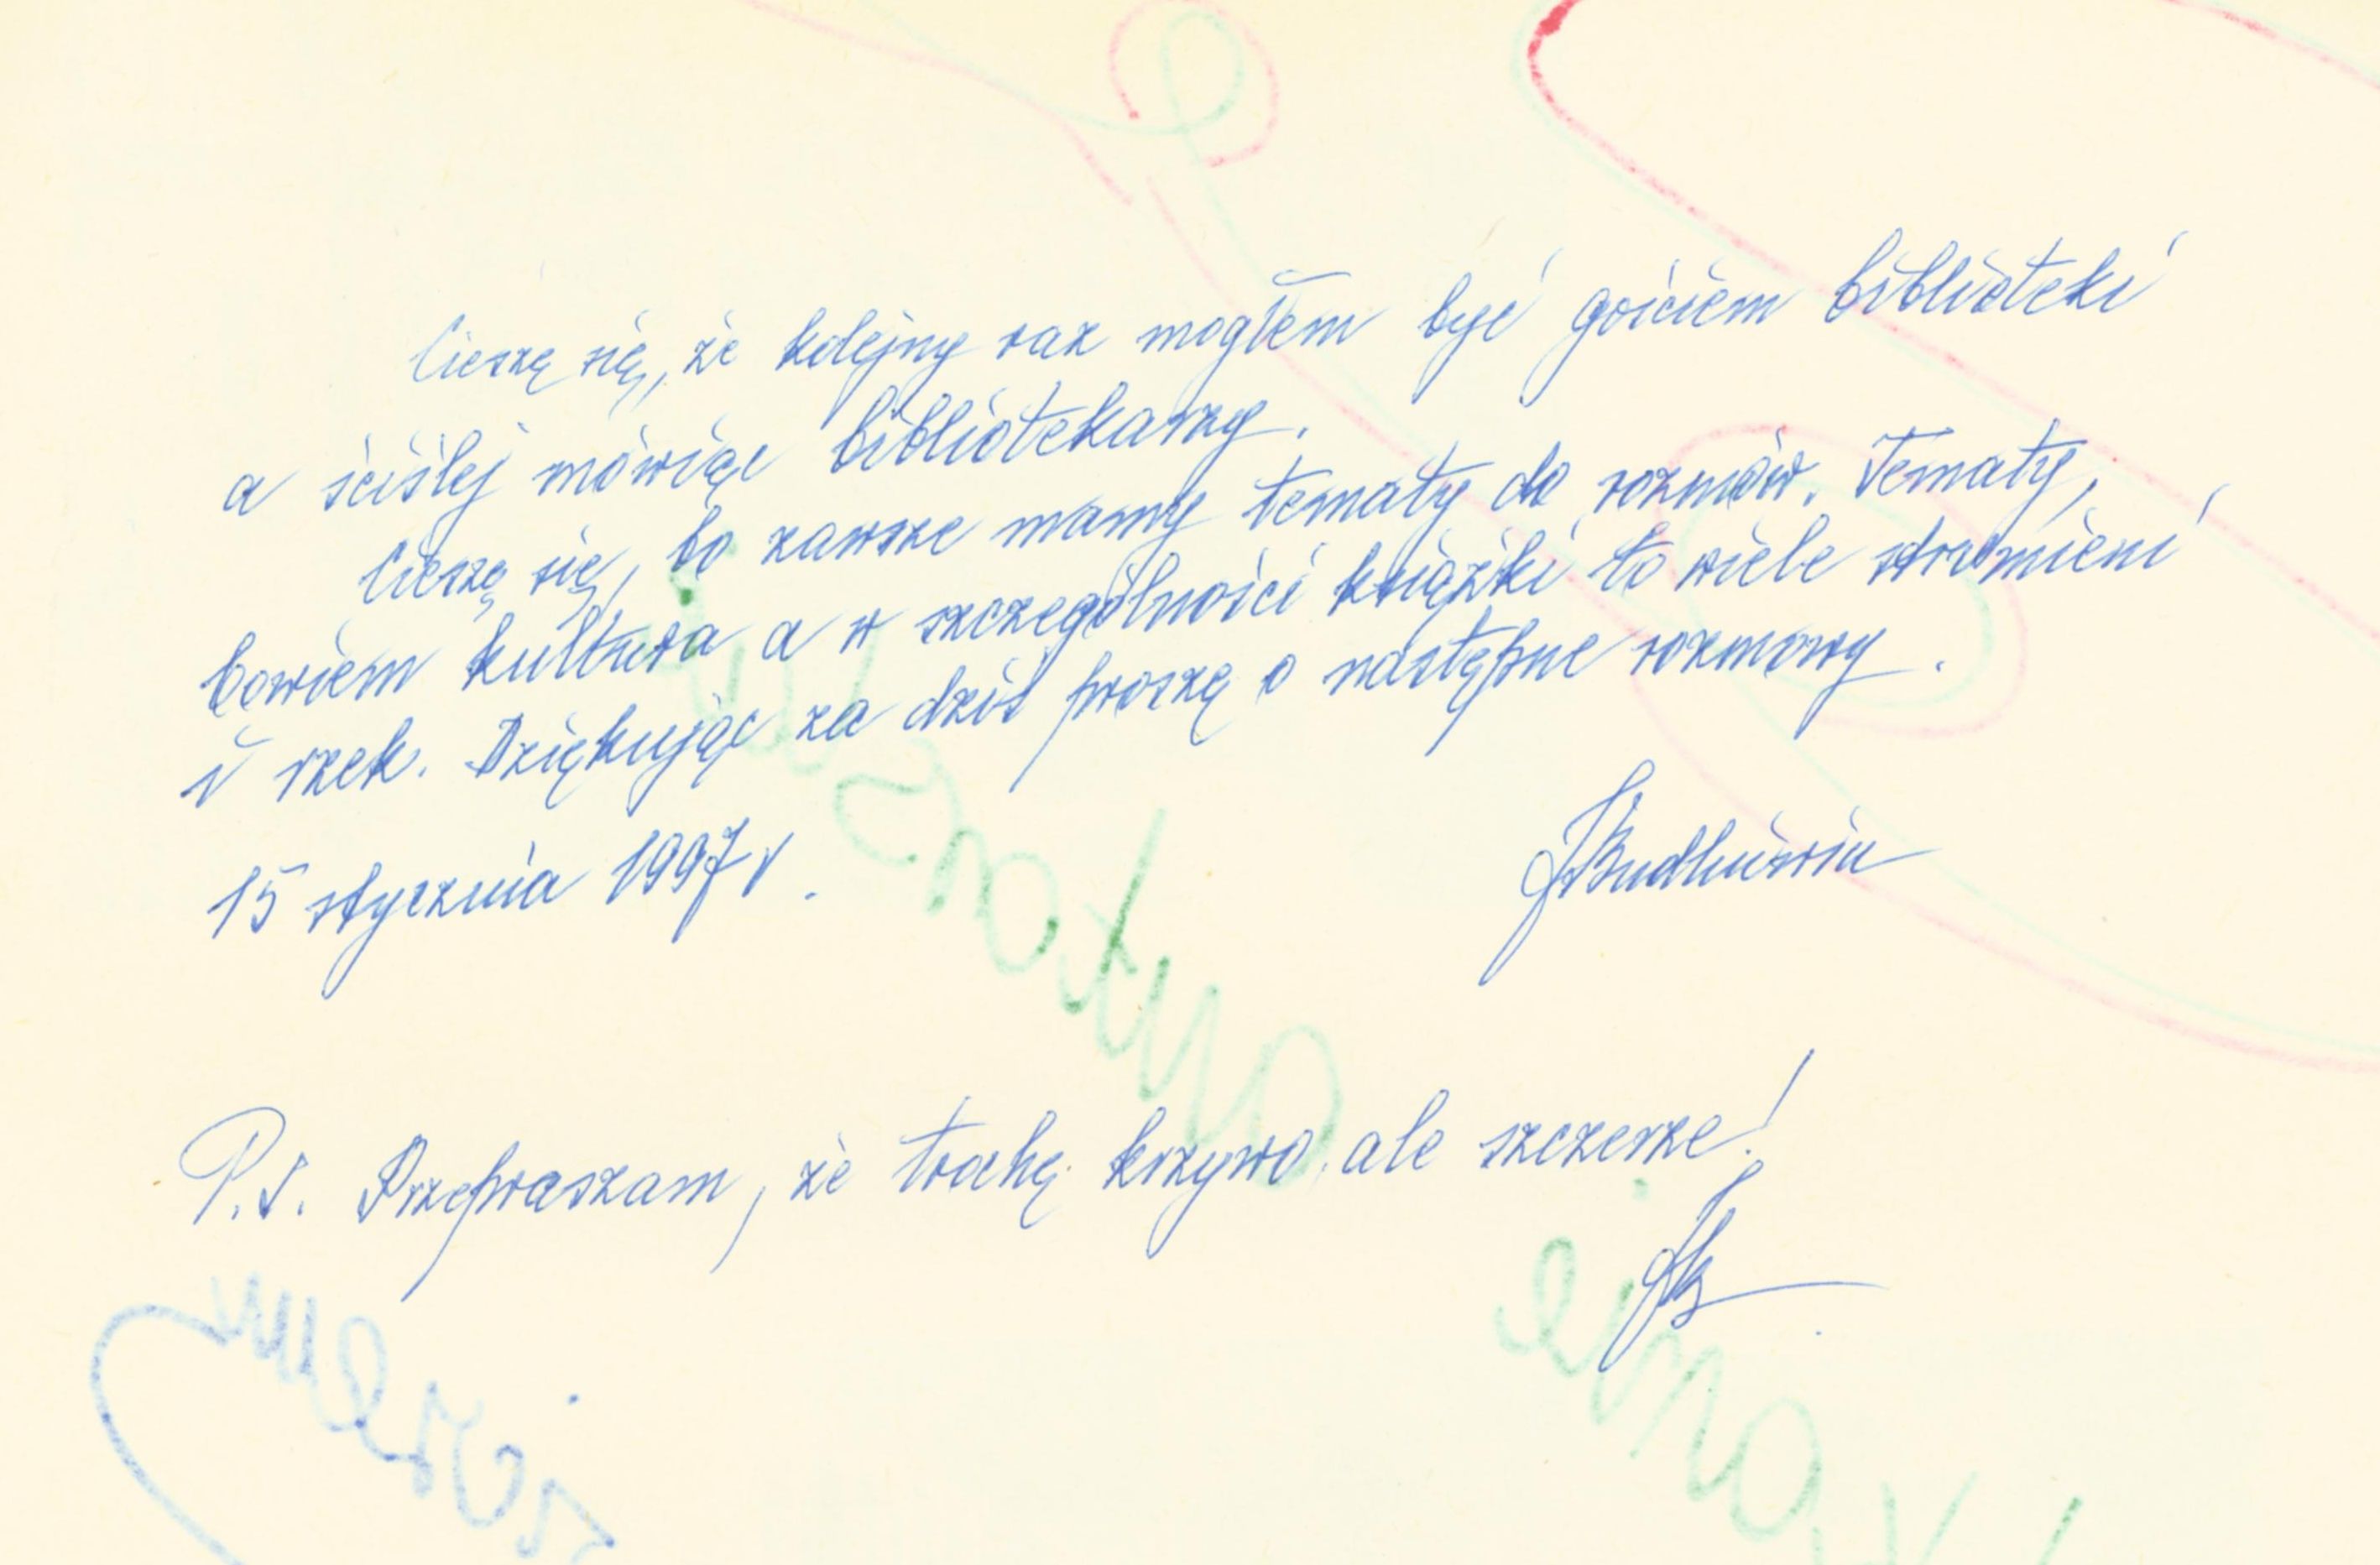 Cieszę się, że kolejny raz mogłem być gościem biblioteki
a ściślej mówiąc bibliotekarzy.
Cieszę się, bo zawsze mamy tematy do rozmów. Tematy,
bowiem kultura a w szczególności książki to wiele strumieni
i rzek. Dziękując za dziś proszę o następne rozmowy.
15 stycznia 1997 r.
P.S. Przepraszam, że trochę krzywo, ale szczerze!